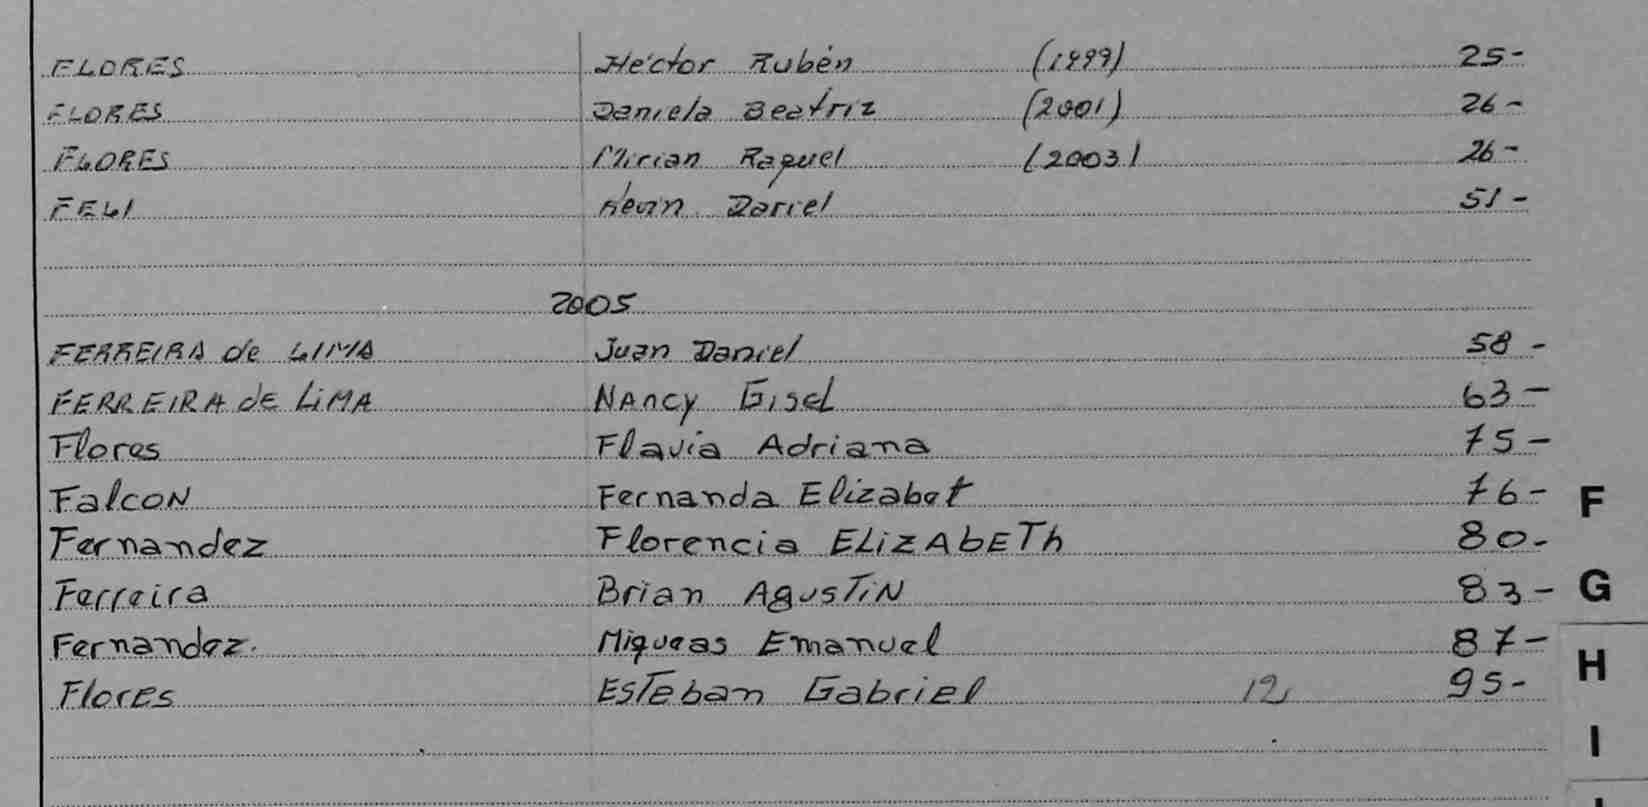 FLORES Héctor Rubén (1999) 25-
FLORES Daniela Beatriz (2001) 26-
FLORES Mirian Raquel (2003) 26-
FELI Kevin Dariel 51-
2005
FERREIRA de LIMA Juan Daniel 58-
FERREIRA de LiMA NAncy GiseL 63-
Flores Flavia Adriana 75-
FalcoN Fernanda Elizabet 76-
F
Fernandez Florencia ELizAbETh 80-
Ferreira Brian AgusTiN 83-
G
Fernandez. Miqueas Emanuel 87-
H
FlorEs EsTeban Gabriel 12 95-
I